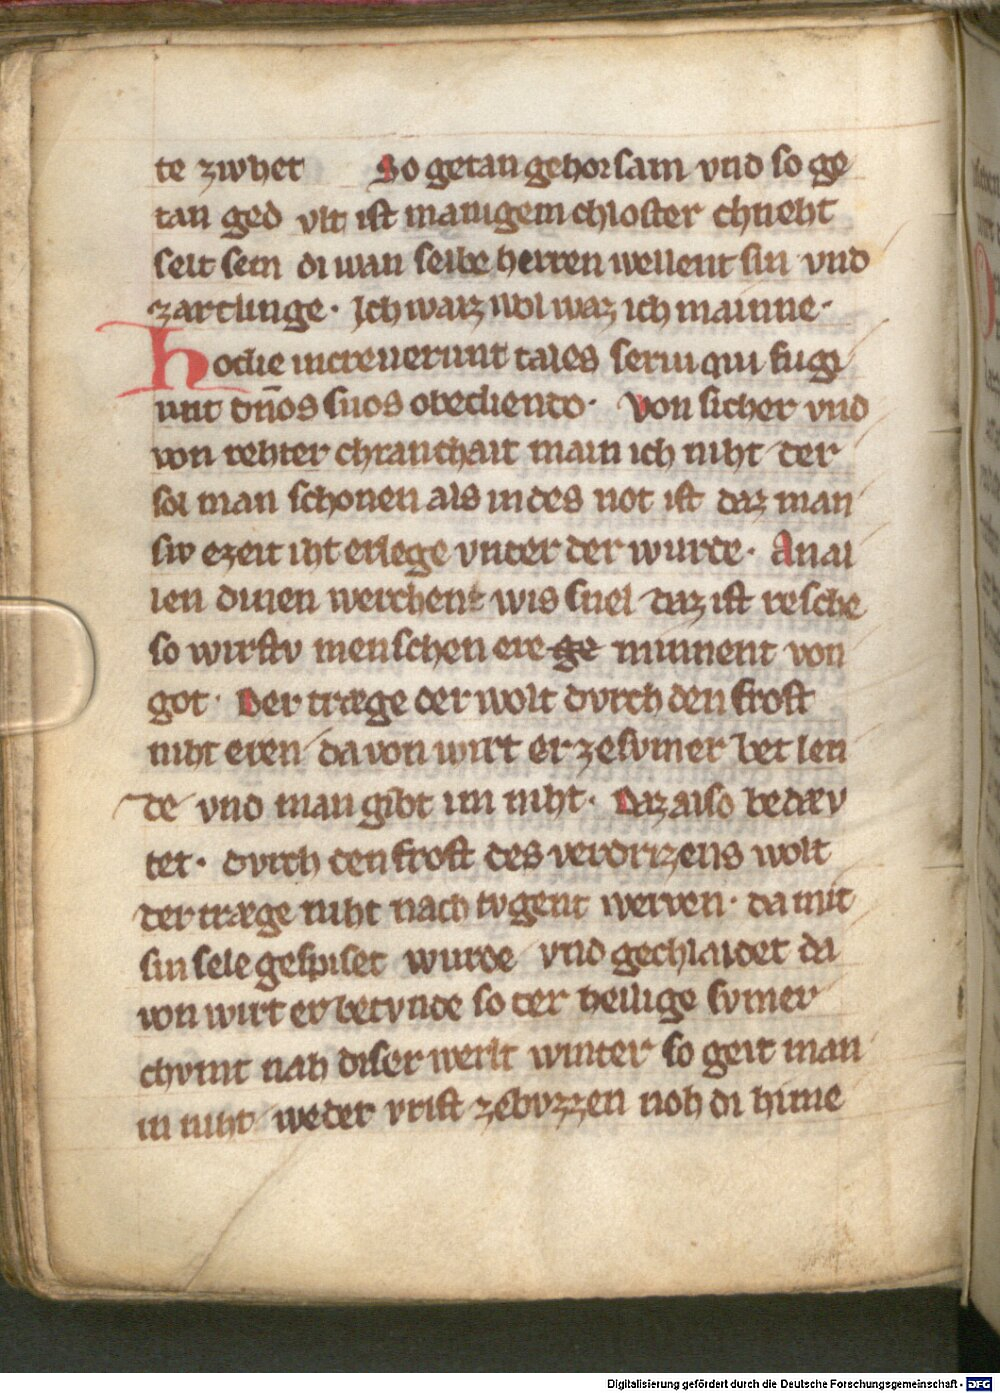 te zwhet So getan gehorsam vnd so ge
tan ged vlt ist manigem chloster chneht
selt sem di wan selbe herren wellent sin vnd
zartlinge · Ich waiz wol waz ich mainne ·
hodie increuerunt tales serui qui fugi
unt dn̄os suos obediendo · Von sicher vnd
von rehter chranchait main ich niht der
sol man schonen als in des not ist daz man
siv ezeit iht erlege vnter der wurde · An al
len dinen werchent wis snel daz ist resche
so wirstv menschen ere ge minnent von
got · Der træge der wolt dvrch den frost
niht eren da von wirt er ze svmer bet len
de vnd man gibt im niht · Daz also bedæv
tet · dvrch den frost des verdrizens wolt
der træge niht nach tvgent werven · da mit
sin sele gespiset wurde vnd gechlaidet da
von wirt er betvnde so der heilige svmer
chvmt nah diser werlt winter so geit man
in niht weder vrist ze bvzzen noh di hime
Digitalisierung gefördert durch die Deutsche Forschungsgemeinschaft - DFG